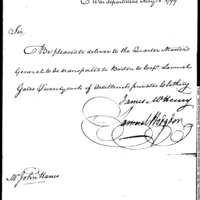 War department May 10. 1799
Sir,
Be pleased to deliver to the Quarter Master
General to be transported to Boston to Capt. Lemuel
Gates Twenty coats of Artillerist privates Clothing
James McHenry
Samuel Hodgdon
Mr. John Harris